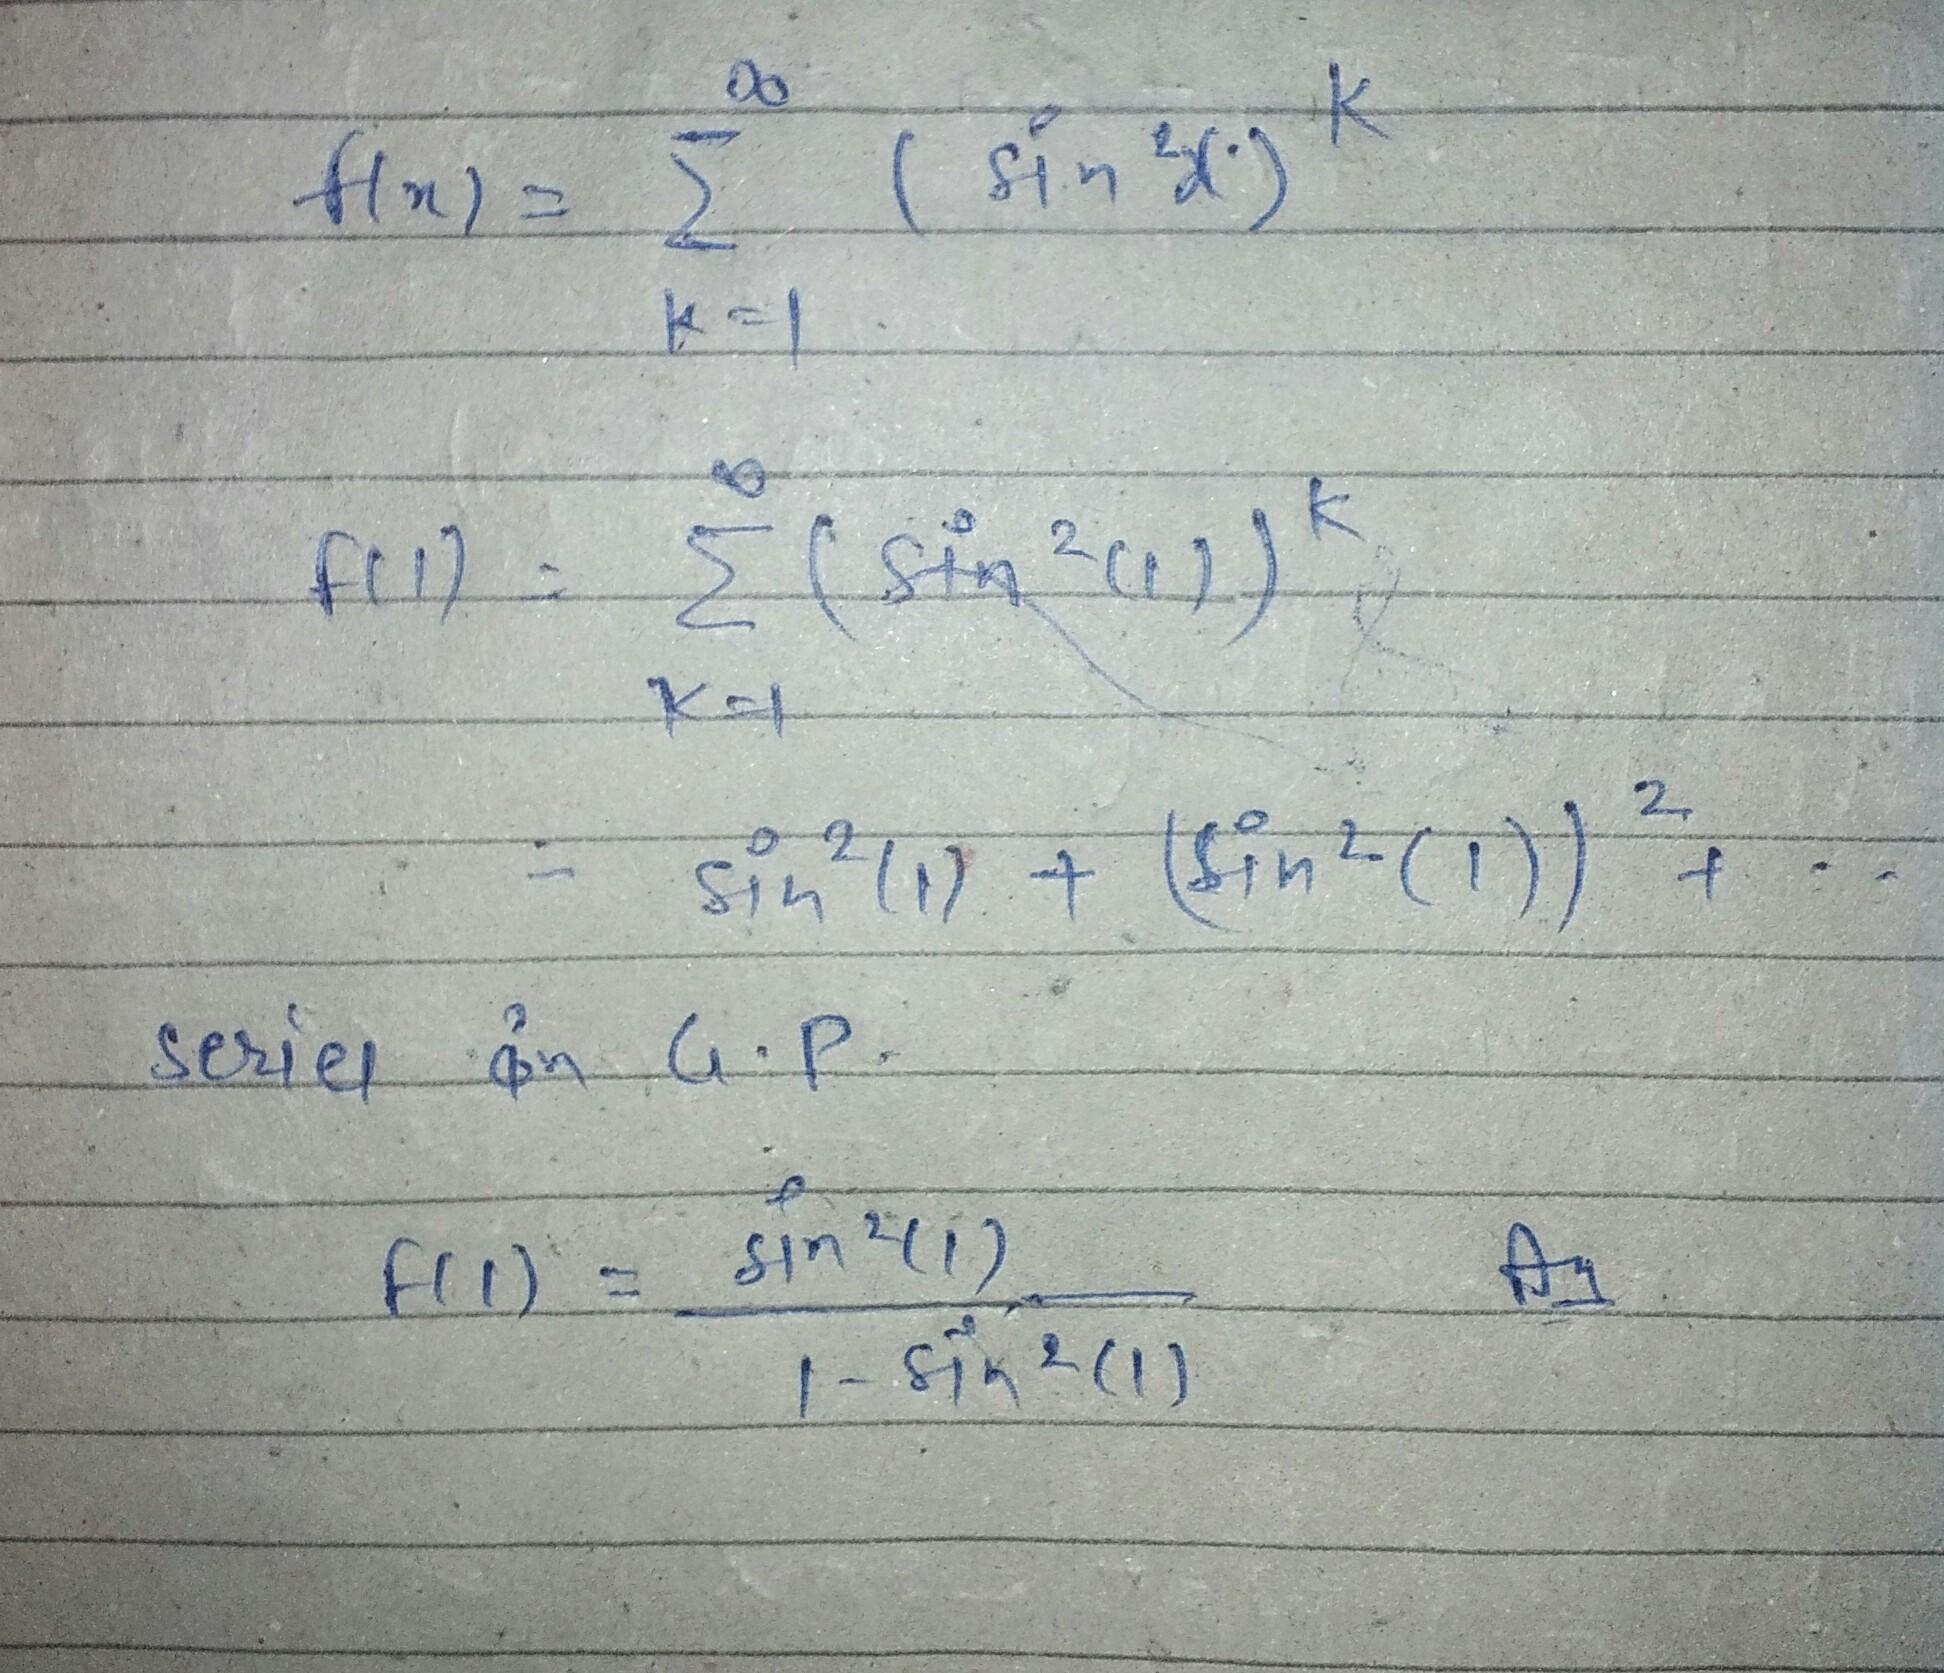 f(x) = ∞ Σ k=1 (sin²x)^k
f(1) = ∞ Σ k=1 (sin²(1))^k
= sin²(1) + (sin²(1))² + ..
series in G.P.
f(1) = sin²(1) / 1 - sin²(1) Ans